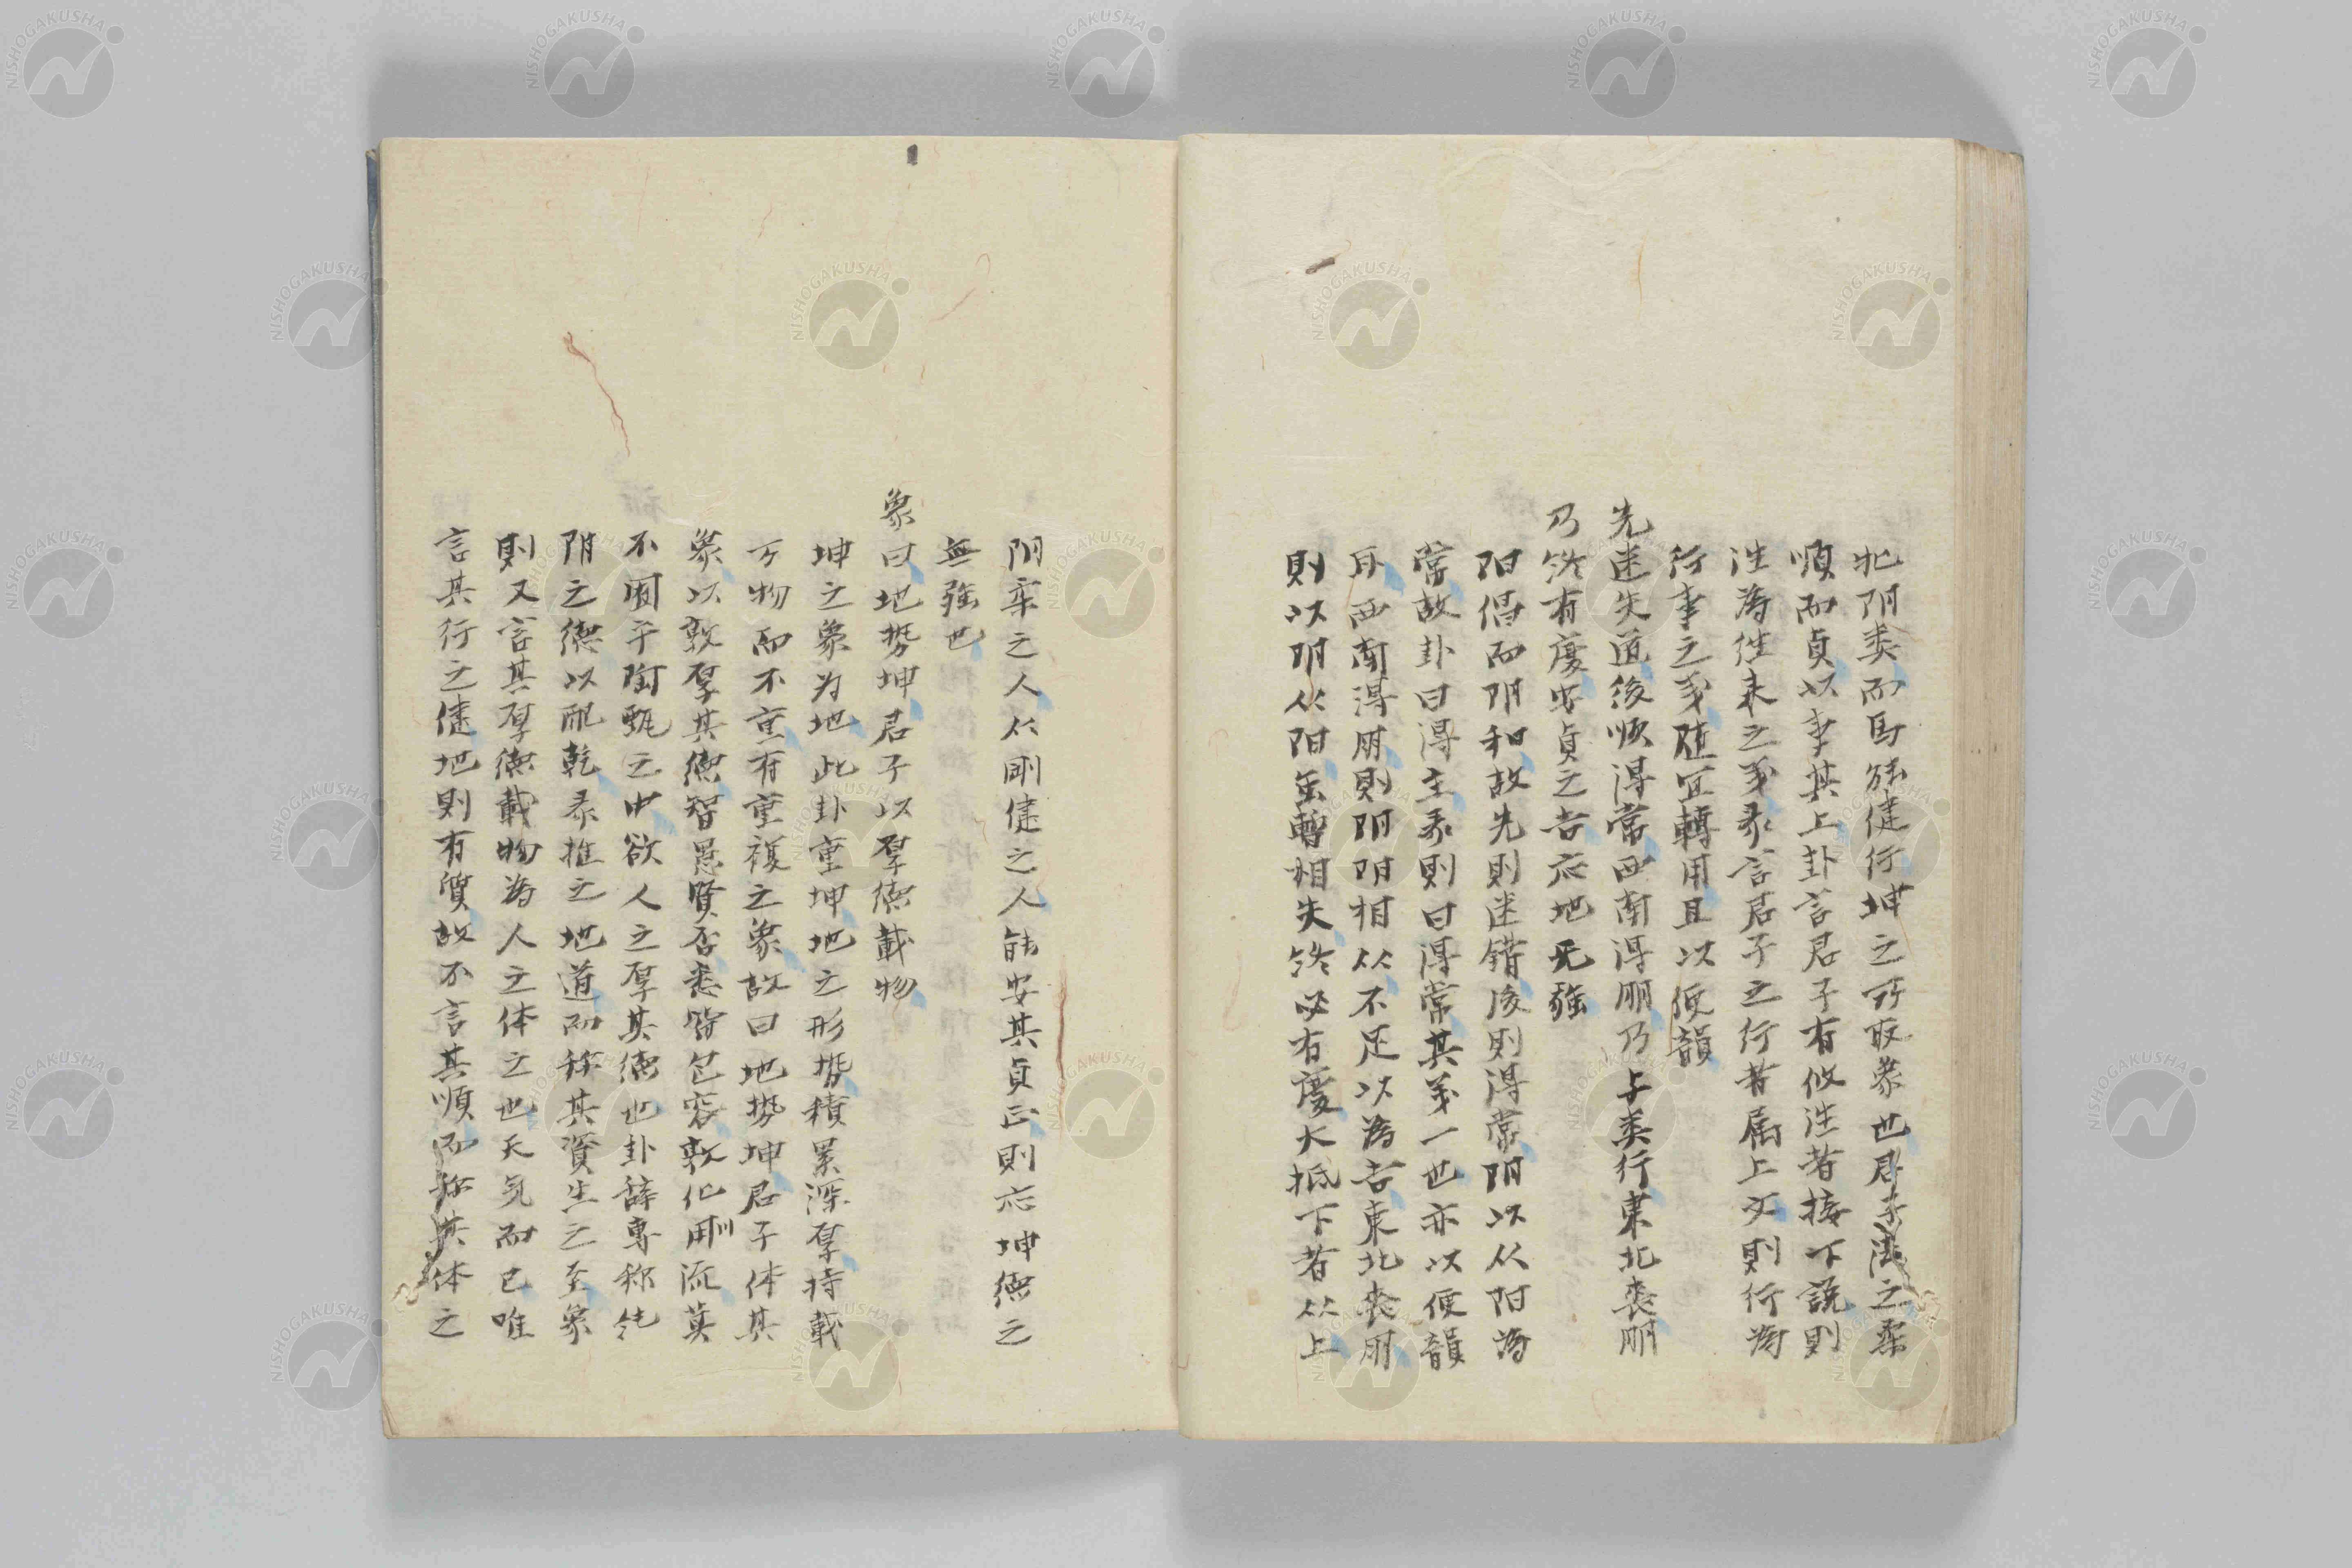 牝阴类而馬能健行坤之所取象也君子法之柔
順而貞以事其上卦言君子有攸往者接下説則
往為往来之義彖言君子之行者属上文則行為
行事之義随宜轉用且以便韻
先迷失道後順得常西南得朋乃与类行東北喪朋
乃终有慶安貞之吉应地无強
阳倡而阴和故先則迷錯後則得常阴以从阳為
常故卦曰得主彖則曰得常其義一也亦以便韻
耳西南得朋則阴阴相从不足以為吉東北喪朋
則以阴从阳虽暫相失终必有慶大抵下者从上
阴柔之人从剛健之人能安其貞正則应坤德之
無強也
象曰地势坤君子以厚德載物
坤之象为地此卦重坤地之形势積累深厚持載
万物而不重有重複之象故曰地势坤君子体其
象以敦厚其德智愚賢否悉皆包容敦化用流莫
不囿于陶甄之中欲人之厚其德也卦辞専称牝
阴之德以配乾彖推之地道而称其資生之至象
則又言其厚德載物為人之体之也天気而已唯
言其行之健地則有質故不言其順而称其体之
NISHOGAKUSHA